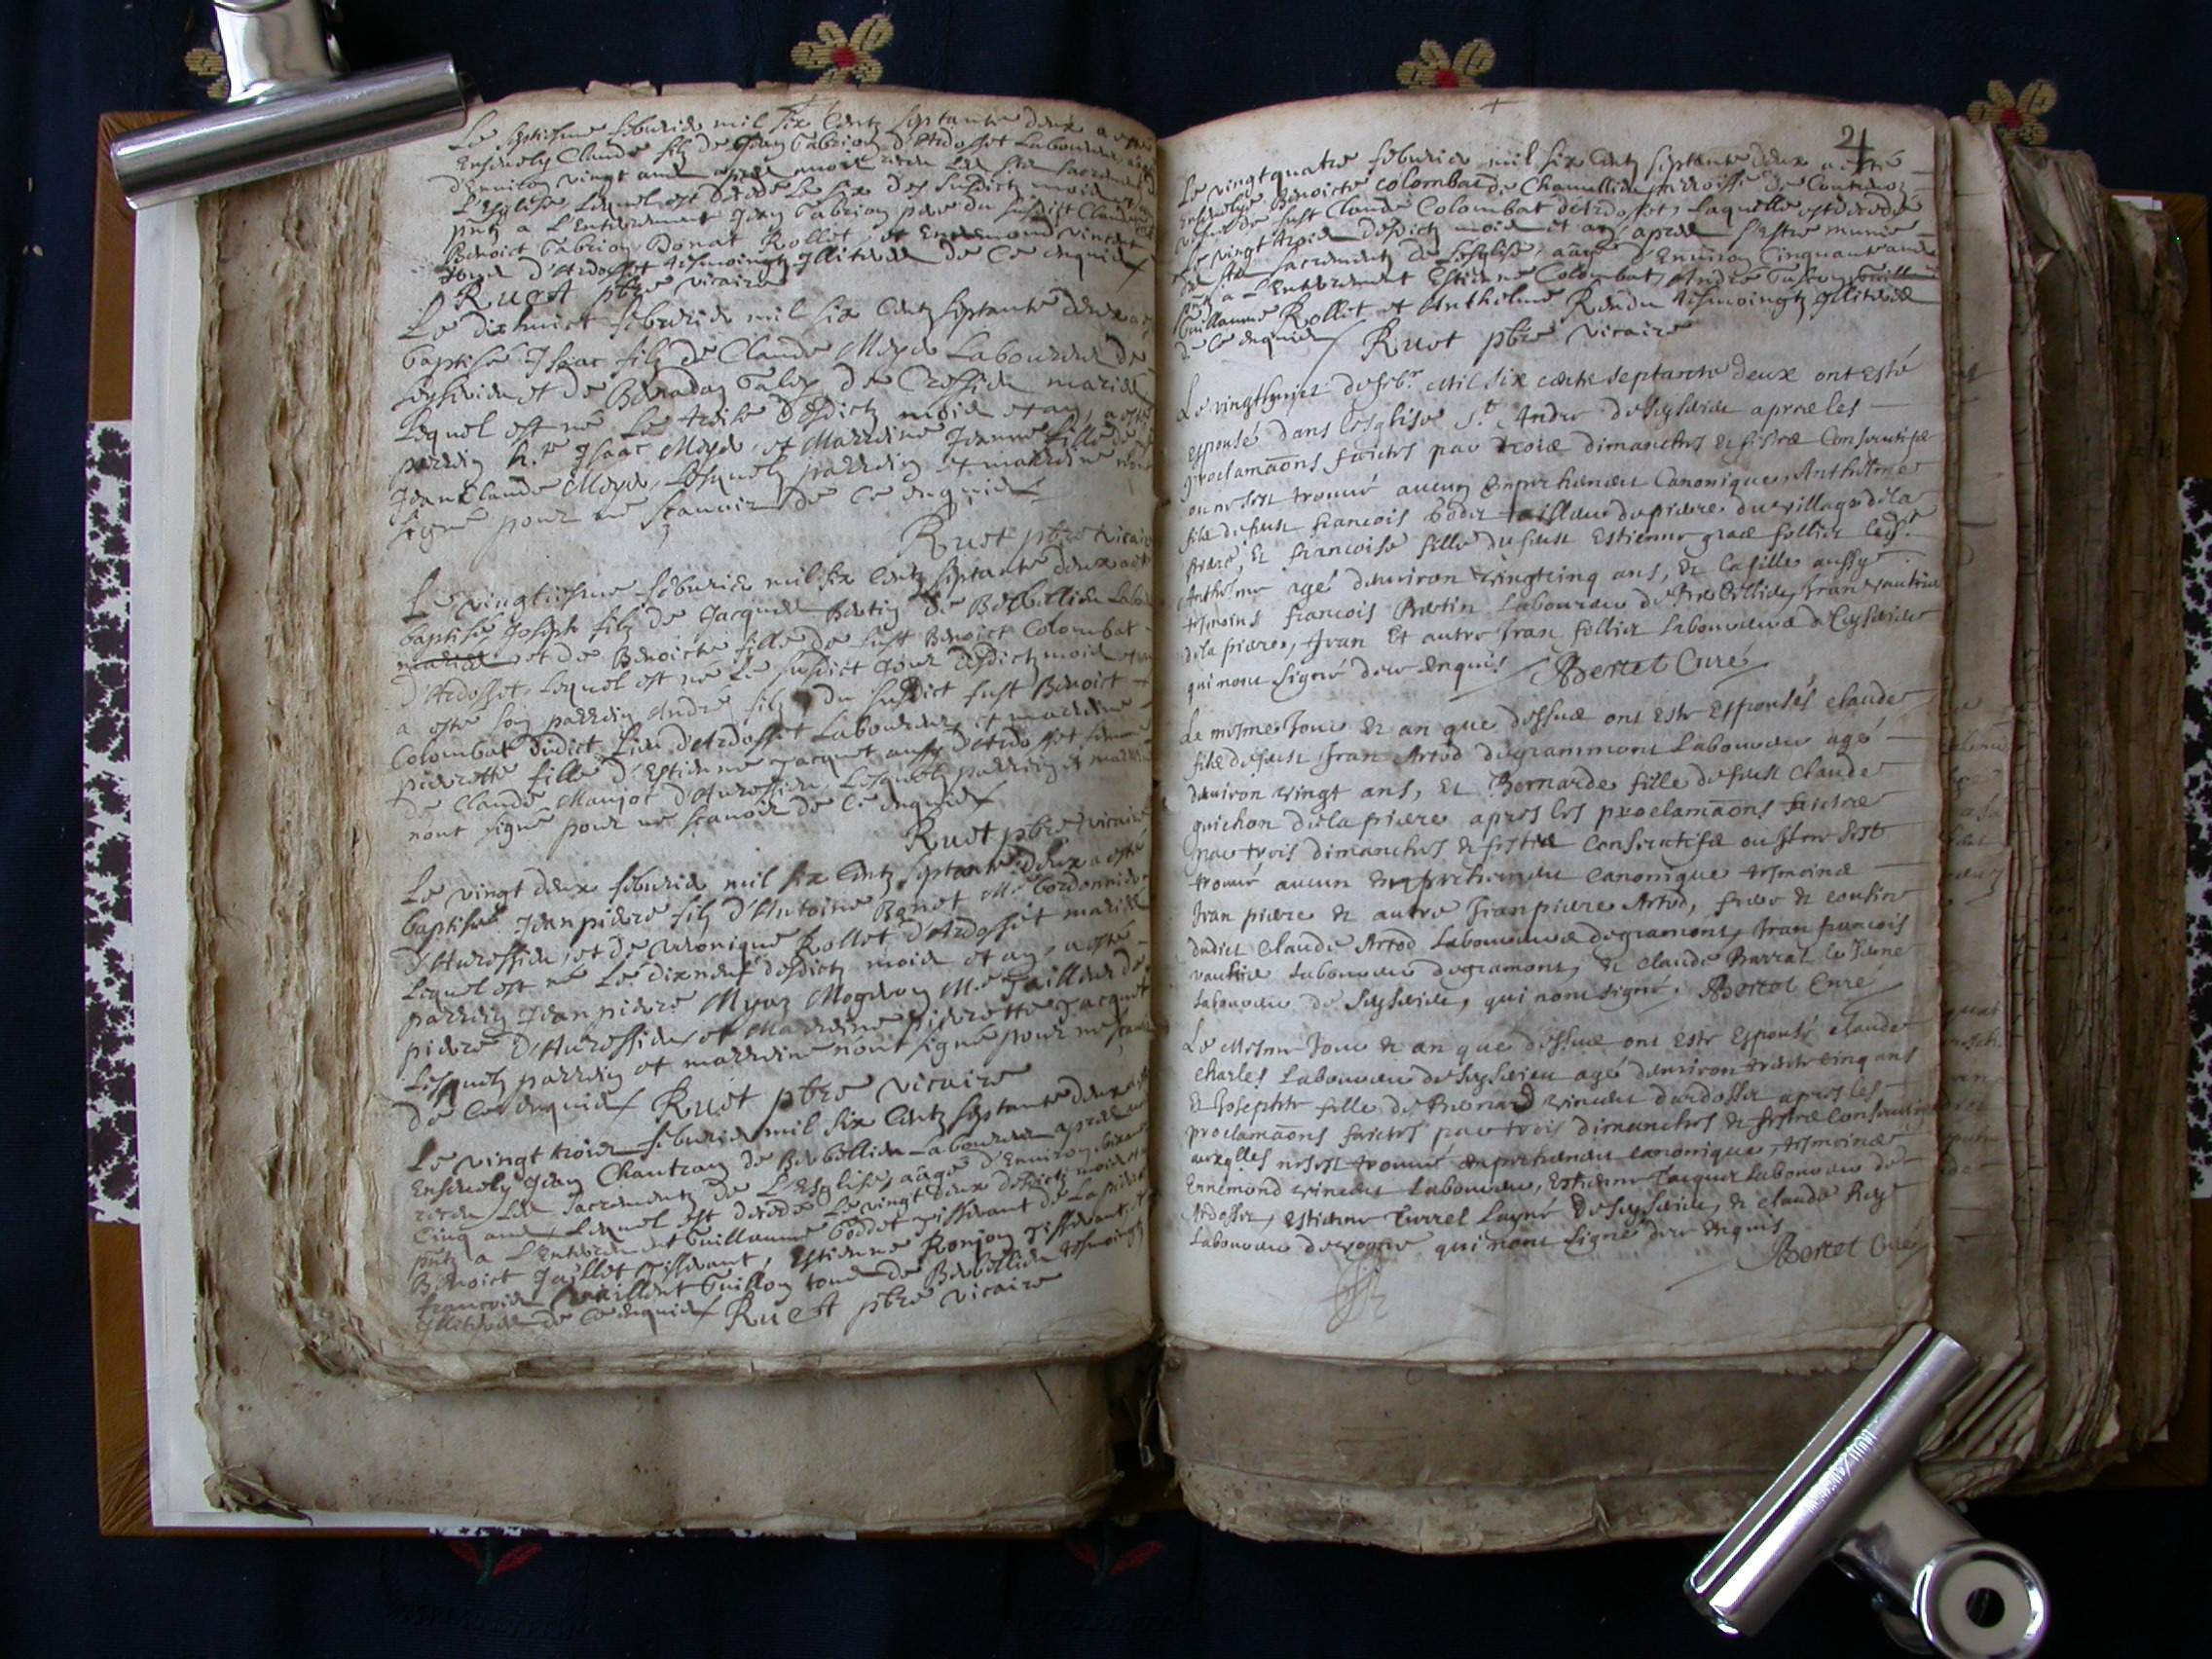 Le septiesme febvrier mil six centz septante deux a esté
Ensevely Claude filz de Jean Gabrion d'Ardosset Laboureur aagé
d'Environ vingt ans apres avoir receu Les stes sacrementz
L'Esglise Lequel est decedé Le six des susdictz mois
pntz a L'Enterrement Jean Gabrion pere du susdict Claude
Benoict Gabrion Donat Rollet, et Ennemond Vincent
tous d'Ardosset tesmoingtz illiteres de ce enquis
Ruet pbre vicaire
Le dixhuict febvrier mil six centz septante deux a
baptisé Isaac filz de Claude Meyer Laboureur de
Seyssieu et de Bernarde de Cressieu mariés
Lequel est né Le treize desdictz mois et an, a esté
parrein h.e Isaac Meyer, et Marreine Jeanne fille de
Jean Claude Meyer, Lesquelz parrein et marreine n'ont
signé pour ne sçavoir de ce enquis
Ruet pbre vicaire
Le vingtiesme febvrier mil six centz septante deux a esté
baptisé Joseph filz de Jacques Bertin de Berbellieu Labou
mariés et de Benoicte fille de fust Benoict Colombat
d'Ardosset, Lequel est né Le susdict jour desdictz mois et an
a esté son parrein André filz du susdict fust Benoict
Colombat dudict Lieu d'Ardosset Laboureur, et marreine
pierrette fille d'Estienne Jacquet aussy d'Ardosset femme
de Claude Manjot d'Auressieu, Lesquelz parrein et marreine
nont signé pour ne sçavoir de ce enquis
Ruet pbre vicaire
Le vingt deux febvrier mil six centz septante deux a esté
baptisé Jean pierre filz d'Antoine Benet M.e Cordonnier
d'Auressieu, et de Veronique Rollet d'Ardosset mariés
Lequel est né Le dixneuf desdictz mois et an, a esté
parrein Jean pierre Mogeron M.e Tailleur de
pierre d'Auressieu et Marreine pierrette Jacquet
Lesquelz parrein et marreine n'ont signé pour ne sçavoir
de ce enquis Ruet pbre vicaire
Le vingt trois febvrier mil six centz septante deux a esté
Ensevely Jean Chantran de Berbellieu Laboureur apres avoir
receu Les sacrementz de L'Esglise, aagé d'Environ
Cinq ans Lequel est decedé Le vingt deux desdictz mois et an
pntz a L'Enterrement Guillaume Boddet Tisserant de La pierre
Benoict Jaillet Tisserant, Estienne Ronjon Tisserant, et
françois Guillon tous de Berbellieu tesmoingtz
illiteres de ce enquis Ruet pbre vicaire
24
Le vingt quatre febvrier mil six centz septante deux a esté
ensevelye Benoicte Colombat de Chamillieu parroisse de Contrevoz
vefve de fust Claude Colombat d'Ardosset, Laquelle est decedée
Le vingt trois desdictz mois et an apres s'estre munie
des stes sacrementz de L'esglise, aagée d'Environ Cinquante ans
pntz a L'enterrement Estienne Colombat, André
Guillaume Rollet et Anthelme Rendu tesmoingtz illiteres
de ce enquis Ruet pbre vicaire
Le vingthuict de febr. Mil six cents septante deux ont esté
espousé dans l'esglise St. André de Seyssieu apres les
proclamaõns faictes par trois dimanches & festes consecutifs
ou ne s'est trouvé aucun empechement Canonique, Anthelme
fils de feu françois Bodet tailleur de pierre du village de la
pierre, Et françoise fille de feu Estienne gras follier led.t
Anthelme agé d'environ vingtcinq ans, et la fille aussy
tesmoins françois Bertin Laboureur de Berbillieu, Jean
de la pierre, Jean Et autre Jean follier Laboureurs de Seyssieu
qui nont signé de ce enquis Bertet Curé
Le mesme Jour & an que dessus ont esté Espousés Claude
fils de feu Jean Artod de grammont Laboureur agé
denviron vingt ans, Et Bernarde fille de feu Claude
guichon de la pierre apres les proclamaõns faictes
par trois dimanches & festes Consecutifs ou il ne s'est
trouvé aucun empechement Canonique tesmoins
Jean pierre & autre Jean pierre Artod, frere & cousin
dudict Claude Artod Laboureurs de gramont, Jean françois
Laboureur de gramont, & Claude Barrat le Jeune
Laboureur de Seyssieu, qui nont signé. Bertet Curé
Le Mesme Jour & an que dessus ont esté Espousé Claude
Charles Laboureur de Seyssieu agé denviron trente cinq ans
& Josephte fille de Bernard vincent d'ardosset apres les
proclamaõns faictes par trois dimanches & festes consecutifs
auxqlles ne s'est trouvé empechement canonique, tesmoins
Ennemond vincent Laboureur, Estienne Jacquet Laboureur de
Ardosset, Estienne Turrel Layné de Seyssieu, & Claude Rey
Laboureur qui nont signé de ce enquis
Bertet Curé